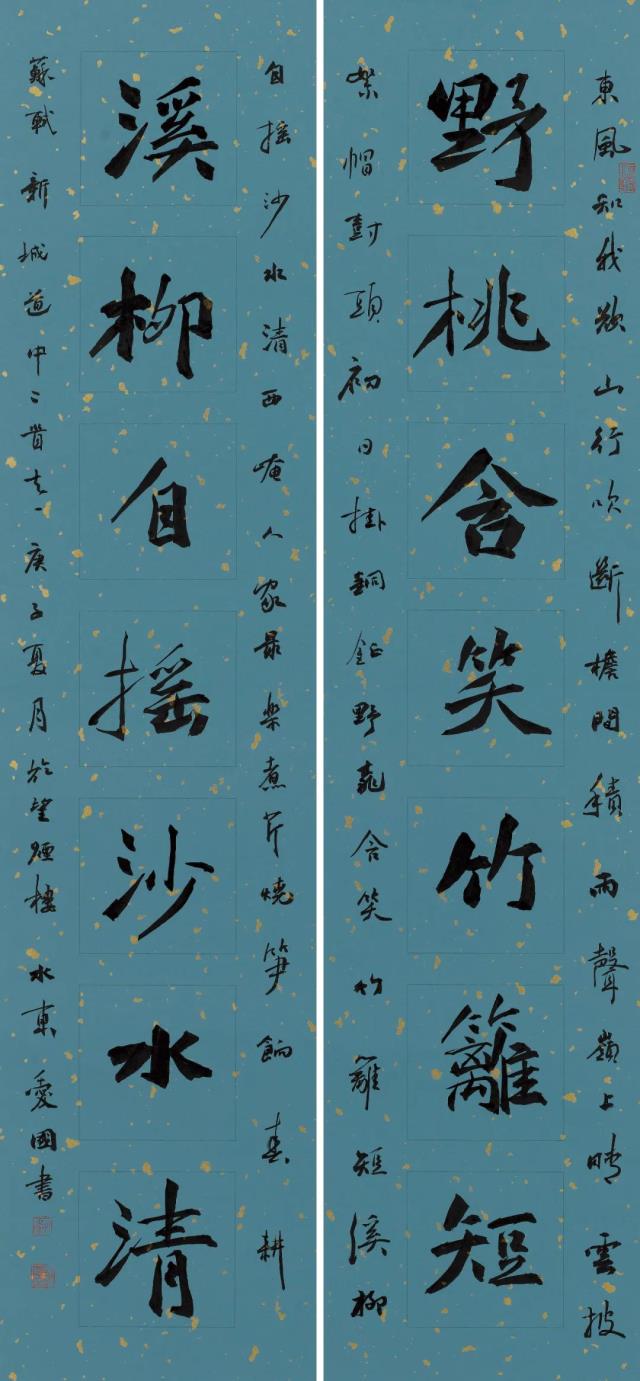 東風知我欲山行吹斷檐間積雨聲嶺上晴雲披
野桃含笑竹籬短
絮帽樹頭初日掛銅鉦野桃含笑竹籬短溪柳
自摇沙水清西崦人家最樂煮芹燒笋餉春耕
溪柳自摇沙水清
蘇軾新城道中二首之一庚子夏月於望煙樓水東愛國書